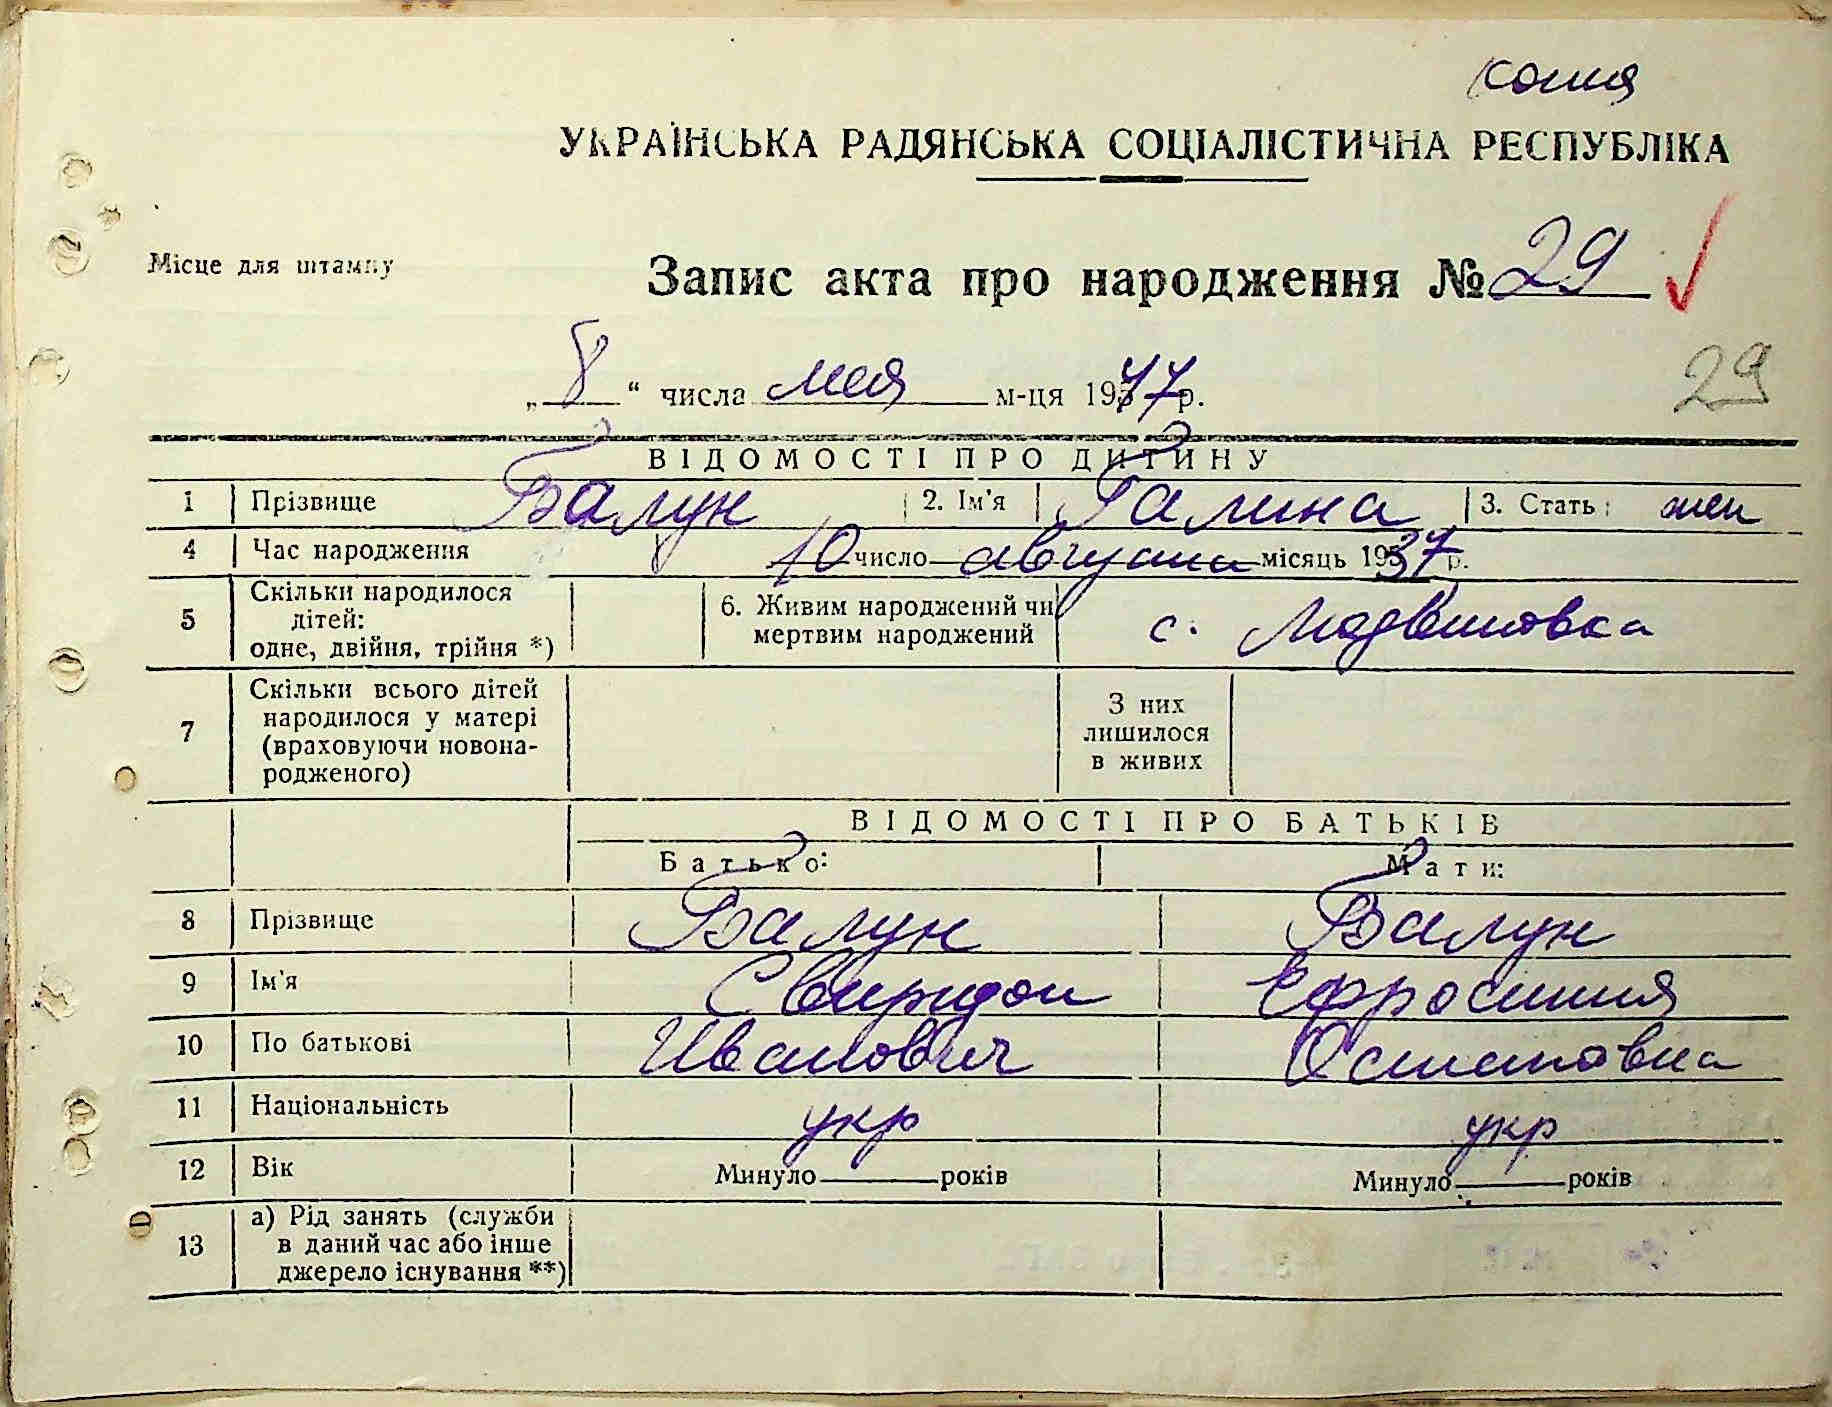 копия
УКРАЇНСЬКА РАДЯНСЬКА СОЦІАЛІСТИЧНА РЕСПУБЛІКА
Місце для штампу
Запис акта про народження № 29
29
„ 8 “ числа мая м-ця 1947 р.
ВІДОМОСТІ ПРО ДИТИНУ
1 Прізвище Балун 2. Ім'я Галина 3. Стать: жен
4 Час народження 10 число августа місяць 1937 р.
5 Скільки народилося дітей: одне, двійня, трійня *) 6. Живим народжений чи мертвим народжений с. Медвиновка
7 Скільки всього дітей народилося у матері (враховуючи новонародженого) З них лишилося в живих
ВІДОМОСТІ ПРО БАТЬКІВ
Батько: Мати:
8 Прізвище Балун Балун
9 Ім'я Свиридон Ефросиния
10 По батькові Иванович Остаповна
11 Національність укр укр
12 Вік Минуло років Минуло років
13 а) Рід занять (служби в даний час або інше джерело існування **)